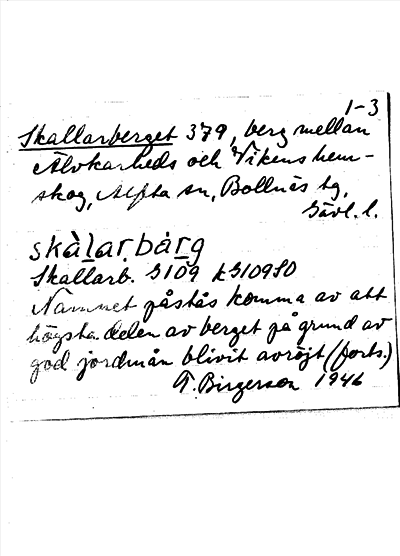 1-3
Skallarberget 379, berg mellan
Älvkarheds och Vikens hem-
skog, Alfta sn, Bollnäs tg,
Gävl. l.
skàlạrbárg
Skallarb. G109 kG109SO
Namnet påstås komma av att
högsta delen av berget på grund av
god jordmån blivit avröjt (forts.)
T. Birgerson 1946